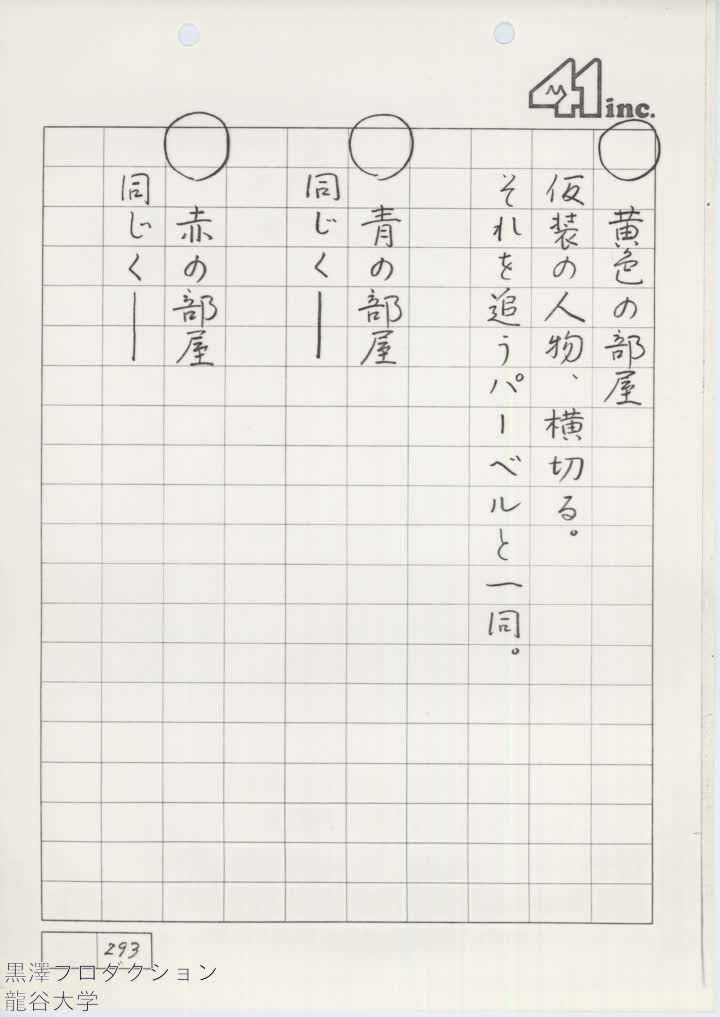 41 inc.
○ 黄色の部屋
仮装の人物、横切る。
それを追うパーベルと一同。
○ 青の部屋
同じく――
○ 赤の部屋
同じく――
293
黒澤プロダクション
龍谷大学